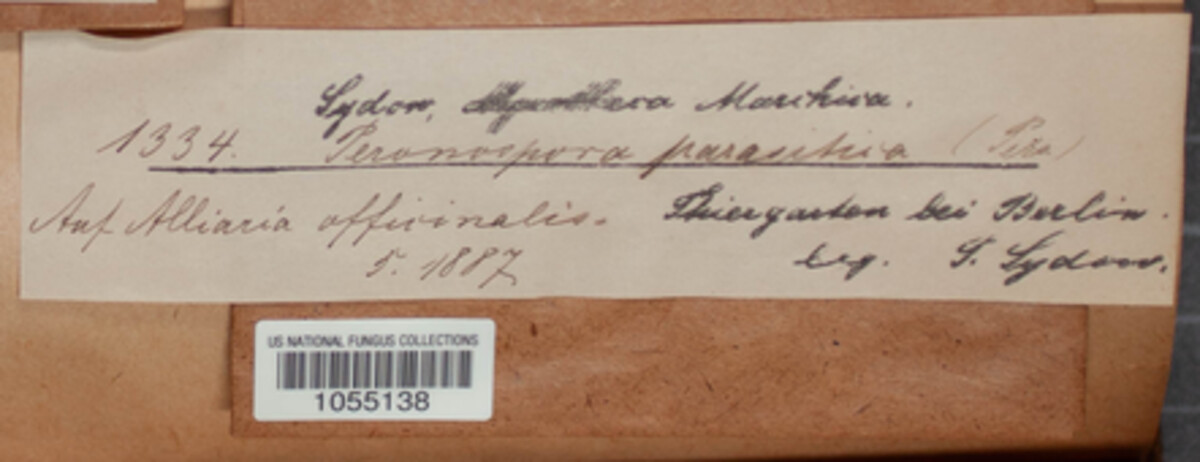 Sydow, Marchica.
1334. Peronospora parasitica (Pers)
Auf Alliaria officinalis. Thiergarten bei Berlin.
5. 1887 leg. P. Sydow.
US NATIONAL FUNGUS COLLECTIONS
1055138